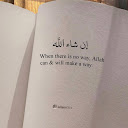 إن شاء الله
When there is no way, Allah
can & will make a way